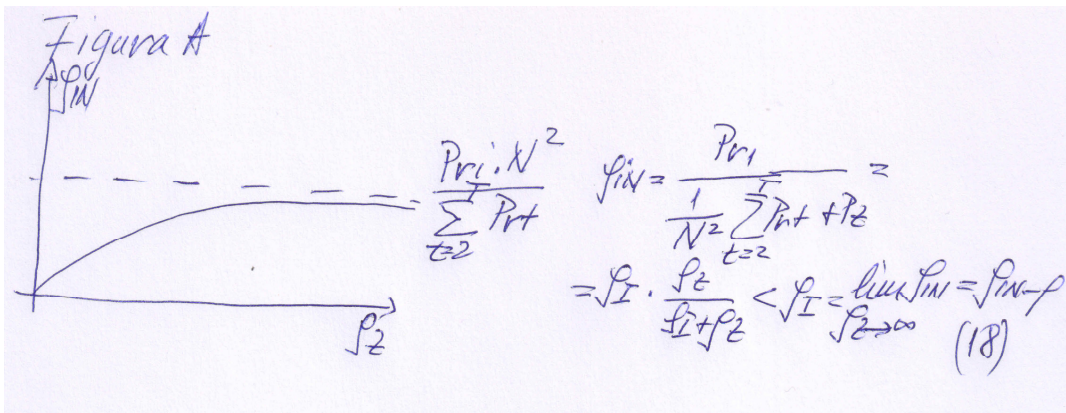 Figura A
ρ_IN
(Pri · N²) / (∑_{t=2}^{T} Prt)
ρ_IN = Pr1 / ((1/N²) ∑_{t=2}^{T} Prt + Pz) =
= ρ_I · ρ_z / (ρ_I + ρ_z) < ρ_I = lim_{ρ_z→∞} ρ_IN = ρ_IN-ρ
ρ_z
(18)